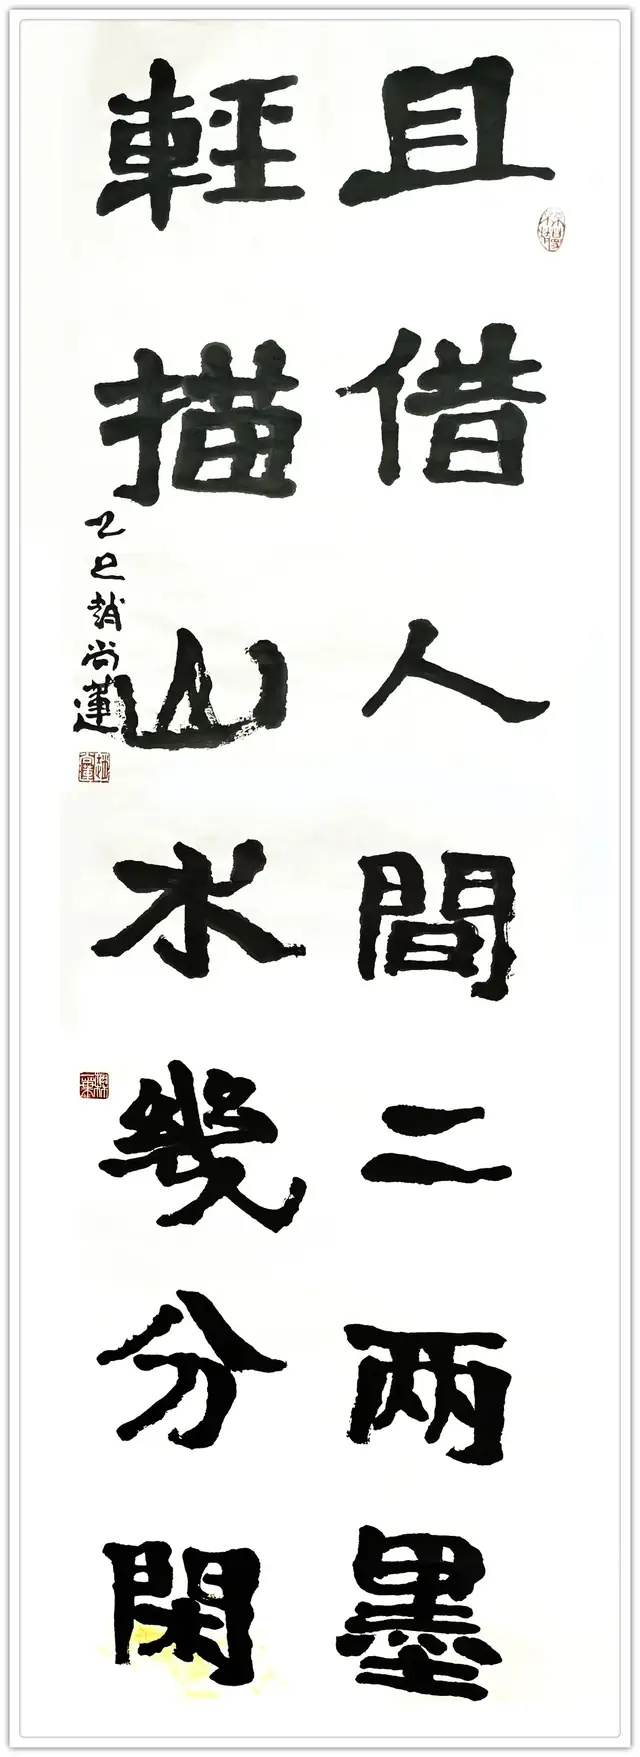 且借人間二两墨
輕描山水幾分閑
乙巳趙尚蓮